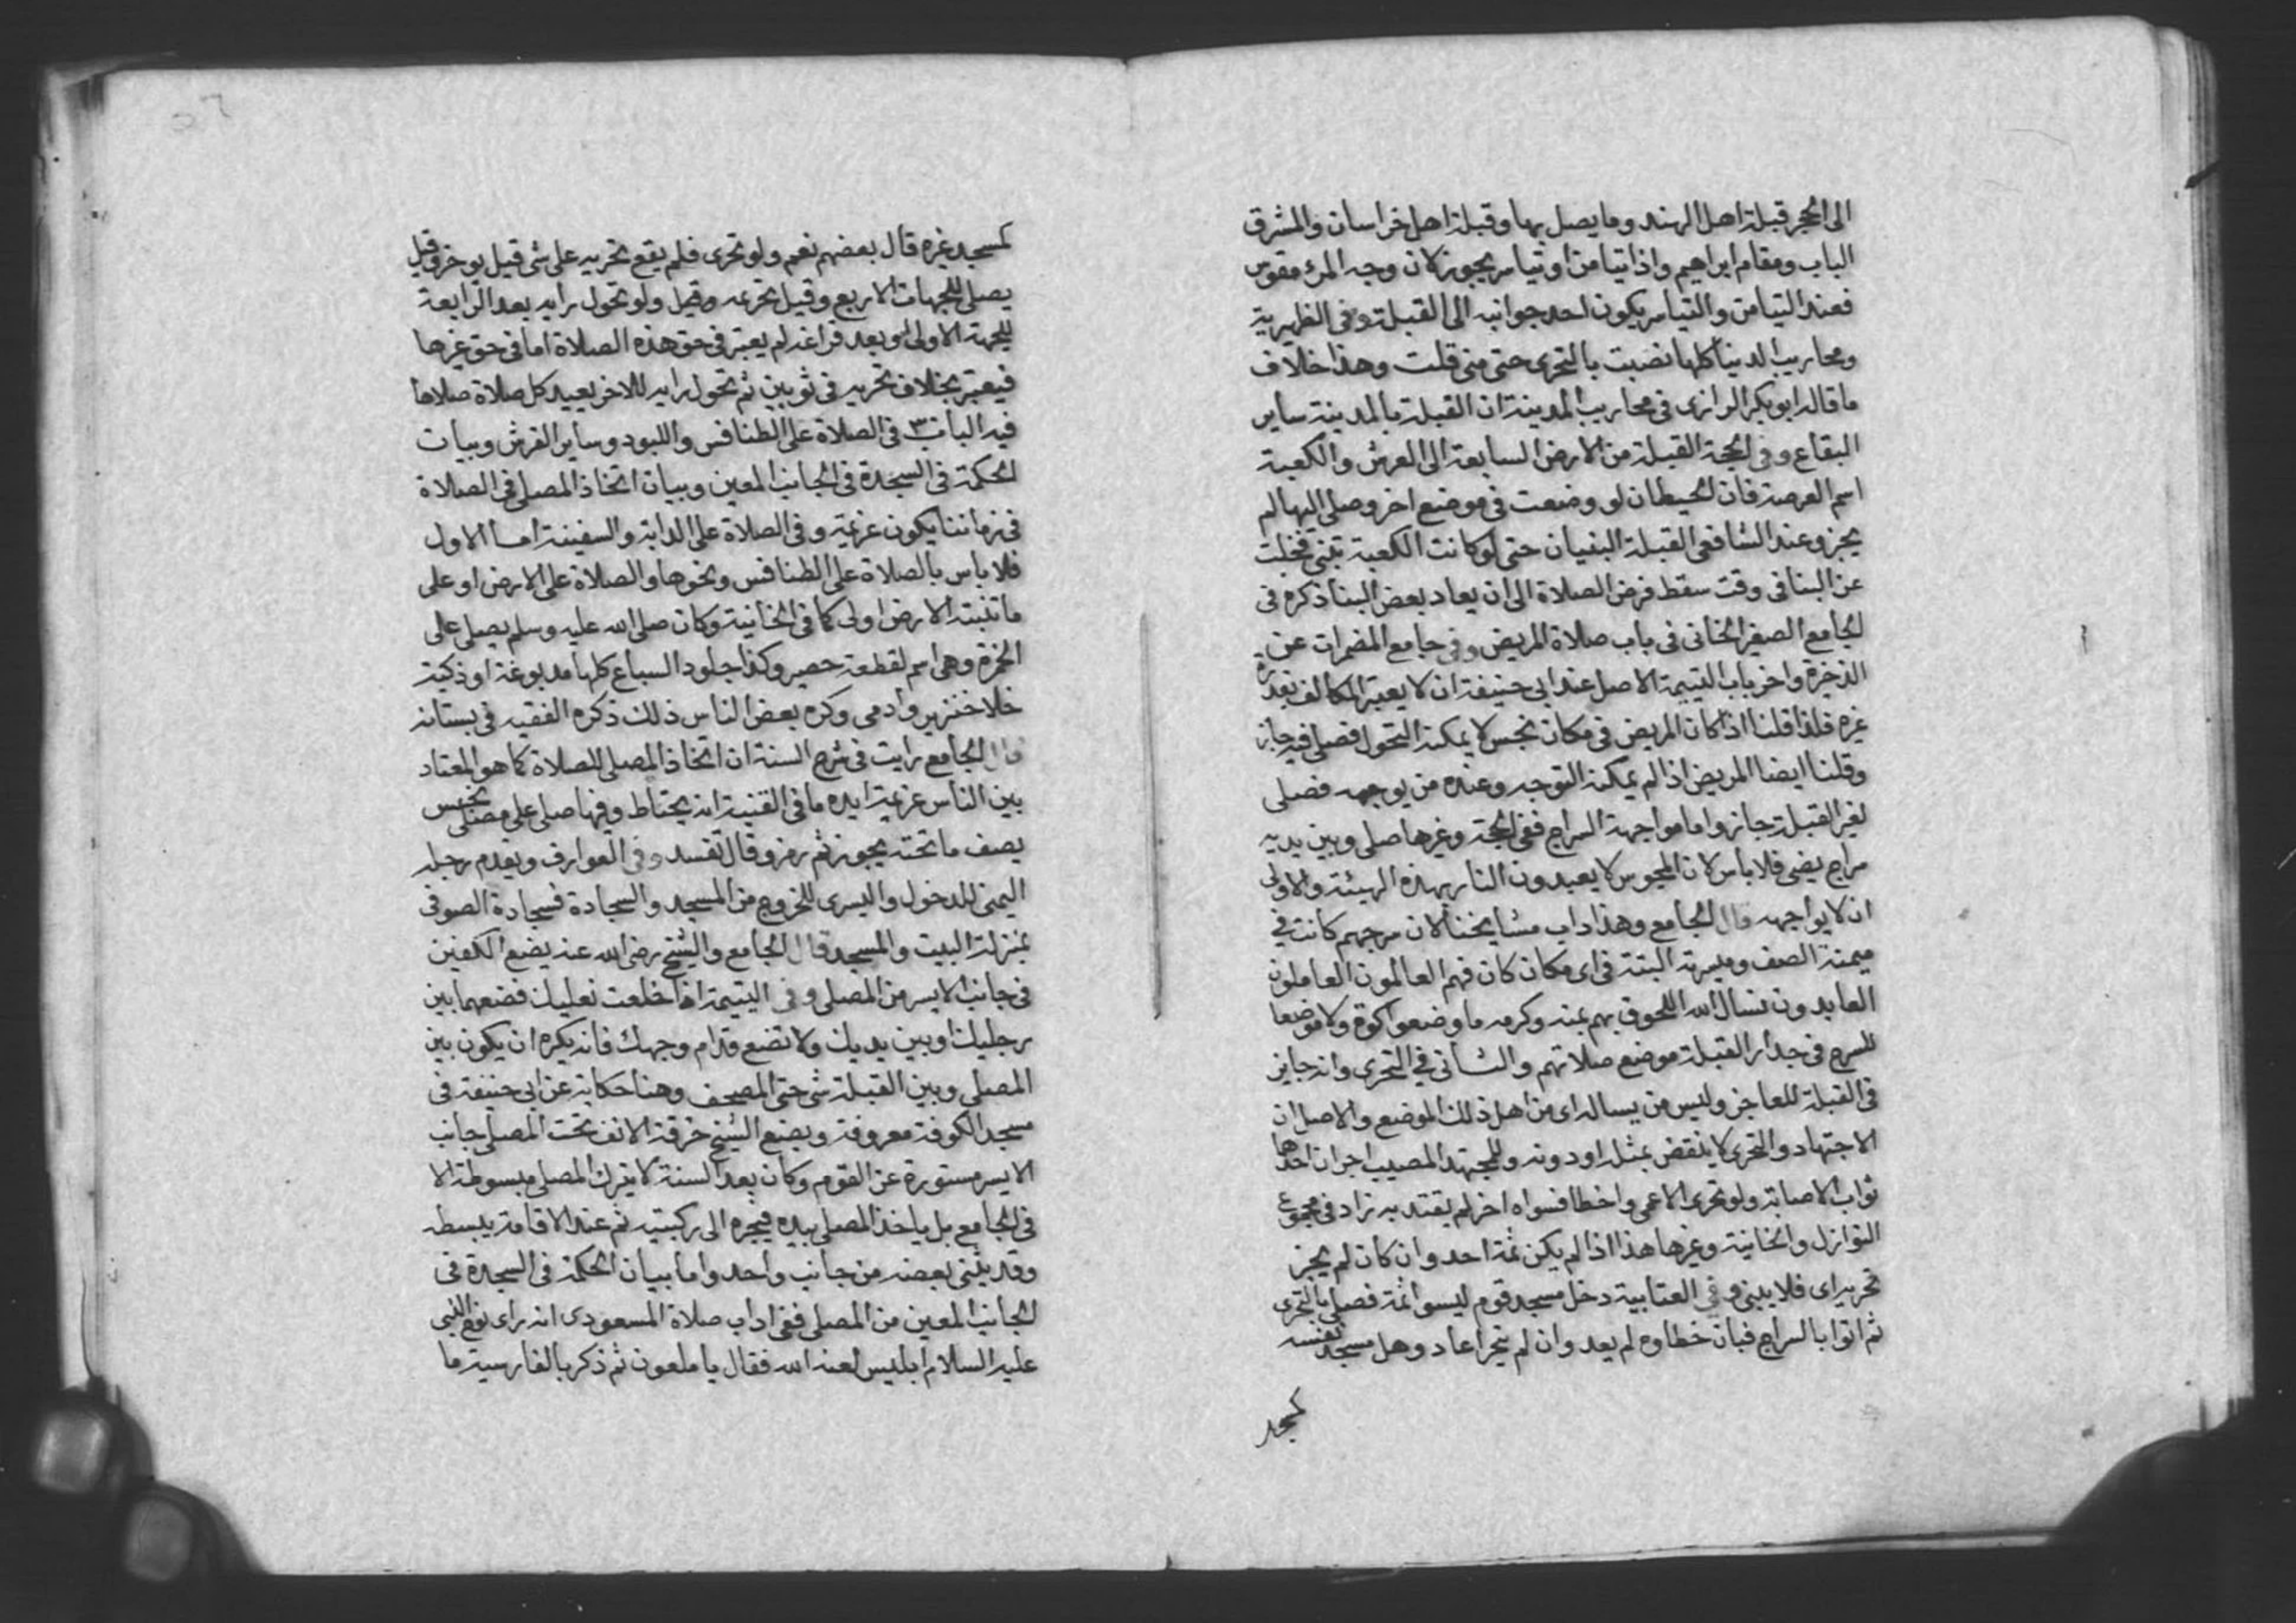 الى الحجر قبلة اهل الهند وما يصل بها وقبلة اهل خراسان والمشرق
الباب ومقام ابراهيم واذا تيامن او تياسر يجوز لان وجه المرء مقوس
فعند التيامن والتياسر يكون احد جوانبه الى القبلة وفى الظهيرية
ومحاريب الدنيا كلها نصبت بالتحرى حتى منى قلت وهذا خلاف
ما قاله ابو بكر الرازى فى محاريب المدينة ان القبلة بالمدينة ساير
البقاع وفى الحجة القبلة من الارض السابعة الى العرش والكعبة
اسم العرصة فان الحيطان لو وضعت فى موضع اخر وصلى اليها لم
يجز وعند الشافعى القبلة البنيان حتى لو كانت الكعبة تبنى فخلت
عن البنا فى وقت سقط فرض الصلاة الى ان يعاد بعض البنا ذكره فى
الجامع الصغير الخانى فى باب صلاة المريض وفى جامع المضمرات عن
الذخيرة واخر باب التيمم الاصل عند ابى حنيفة ان لا يعتبر المكالف بقدرة
غيره فلذا قلنا اذا كان المريض فى مكان نجس لا يمكنه التحول فصلى فيه جاز
وقلنا ايضا المريض اذا لم يمكنه التوجه وعنده من يوجهه فصلى
لغير القبلة جاز واما مواجهة السراج ففى الحجة وغيرها صلى وبين يديه
سراج يضى فلا باس لان المجوس لا يعبدون النار بهذه الهيئة والاولى
ان لا يواجهه قال الجامع وهذا داب مشايخنا لان سرجهم كانت فى
ميمنة الصف وميسرته البتة فى اى مكان كان فهم العالمون العاملون
العابدون نسال الله اللحوق بهم بمنه وكرمه ما وضعوا كوة ولا موضعا
للسرج فى جدار القبلة موضع صلاتهم والثانى فى التحرى وانه جايز
فى القبلة للعاجز وليس من يساله اى من اهل ذلك الموضع والاصل ان
الاجتهاد والتحرى لا ينقض بمثله او دونه وللمجتهد المصيب اجران احدهما
ثواب الاصابة ولو تحرى الاعمى واخطا فسواه اخر لم يقتد به زاد فى مجموع
النوازل والخانية وغيرها هذا اذا لم يكن ثمة احد وان كان لم يجز
تحريه اى فلا يبنى وفى العتابية دخل مسجد قوم ليسوا ثمة فصلى بالتحرى
ثم اتوا بالسراج فبان خطاوه لم يعد وان لم يتحر اعاد وهل مسجد نفسه
كمسجد
كمسجد غيره قال بعضهم نعم ولو تحرى فلم يقع تحريه على شى قيل يوخر وقيل
يصلى للجهات الاربع وقيل تحريمه وقيل ولو تحول رايه بعد الرابعة
للجهة الاولى لو بعد فراغه لم يعتبر فى حق هذه الصلاة اما فى حق غيرها
فيعتبر بخلاف تحريه فى ثوبين ثم تحول رايه للاخر يعيد كل صلاة صلاها
فيه الباب ٣ فى الصلاة على الطنافس واللبود وساير الفرش وبيان
الحكمة فى السجدة فى الجانب المعين وبيان اتخاذ المصلى فى الصلاة
فى زماننا يكون عزيمة وفى الصلاة على الدابة والسفينة اما الاول
فلا باس بالصلاة على الطنافس ونحوها والصلاة على الارض او على
ما تنبته الارض اولى كما فى الخانية وكان صلى الله عليه وسلم يصلى على
الخمرة وهى اسم لقطعة حصير وكذا جلود السباع كلها مدبوغة او ذكية
خلا خنزير وادمى وكره بعض الناس ذلك ذكره الفقيه فى بستانه
قال الجامع رايت فى شرح السنة ان اتخاذ المصلى للصلاة كما هو المعتاد
بين الناس عزيمة ايده ما فى القنية انه يحتاط وفيها صلى على مصلى نجس
يصف ما تحته يجوز ثم رمز وقال تفسد وفى العوارف ويقدم رجله
اليمنى للدخول واليسرى للخروج من المسجد والسجادة فسجادة الصوفى
بمنزلة البيت والمسجد قال الجامع والشيخ رضى الله عنه يضع الكفين
فى جانب الايسر من المصلى وفى اليتيمة اذا خلعت نعليك فضعهما بين
رجليك او بين يديك ولا تضع قدام وجهك فانه يكره ان يكون بين
المصلى وبين القبلة شى حتى المصحف وهنا حكاية عن ابى حنيفة فى
مسجد الكوفة معروفة ويضع الشيخ خرقة الانف تحت المصلى جانب
الايسر مستورة عن القوم وكان بعد السنة لا يترك المصلى مبسوطة الا
فى الجامع بل ياخذ المصلى بيده فيجره الى ركبتيه ثم عند الاقامة يبسطه
وقد يثنى بعضه من جانب واحد واما بيان الحكمة فى السجدة فى
الجانب المعين من المصلى ففى اداب صلاة المسعودى انه راى نوح النبى
عليه السلام ابليس لعنه الله فقال يا ملعون ثم ذكر بالفارسية ما